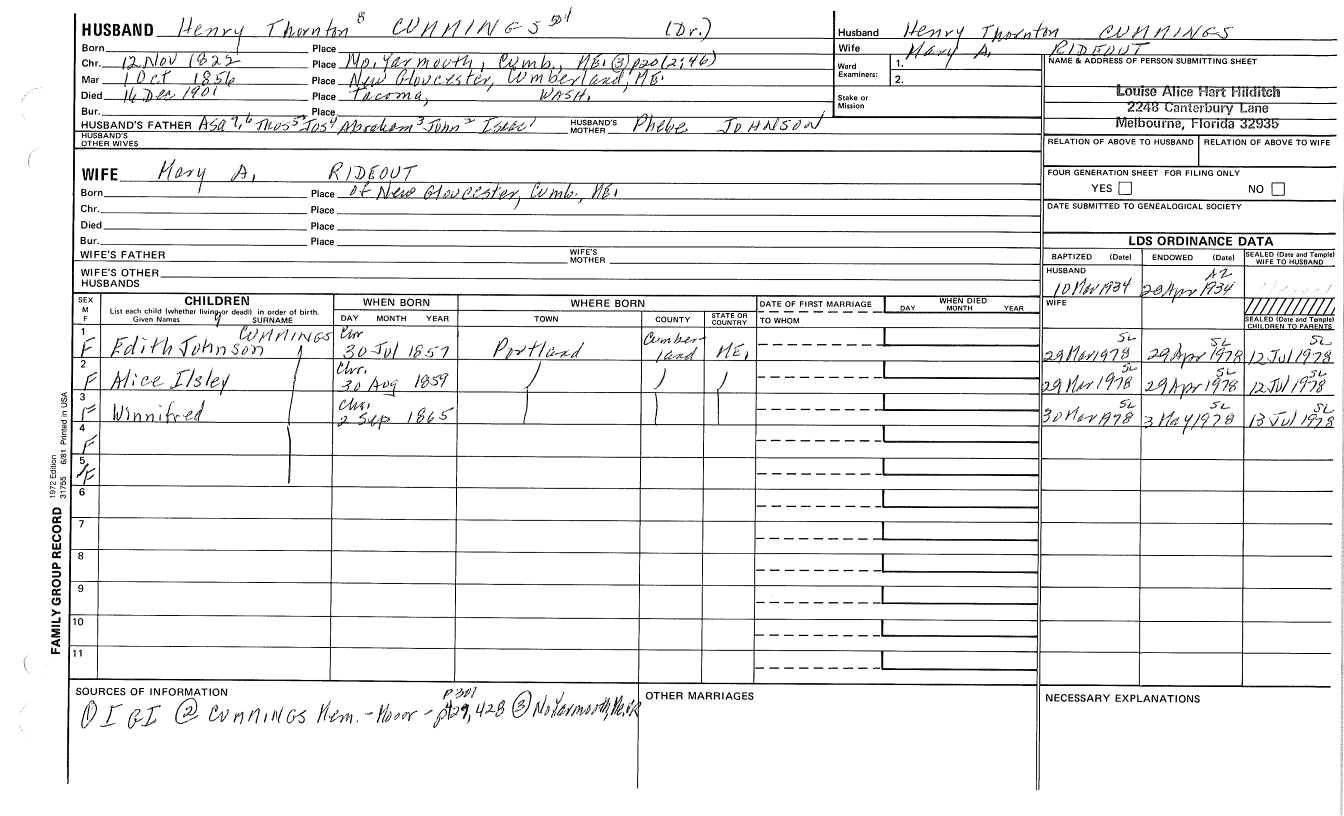 HUSBAND Henry Thornton 8 CUMMINGS (Dr.)
Born Place
Chr. 12 Nov 1822 Place No. Yarmouth, Cumb., ME. ③ p20 (2;46)
Mar 1 Oct 1856 Place New Gloucester, Cumberland, ME.
Died 16 Dec 1901 Place Tacoma, WASH.
Bur. Place
HUSBAND'S FATHER Asa 7,6 Thos 5 Jos 4 Abraham 3 John 2 Isaac 1 HUSBAND'S MOTHER Phebe JOHNSON
HUSBAND'S OTHER WIVES
WIFE Mary A. RIDEOUT
Born Place of New Gloucester, Cumb., ME.
Chr. Place
Died Place
Bur. Place
WIFE'S FATHER WIFE'S MOTHER
WIFE'S OTHER HUSBANDS
Husband Henry Thornton CUMMINGS
Wife Mary A. RIDEOUT
Ward Examiners: 1.
2.
Stake or Mission
NAME & ADDRESS OF PERSON SUBMITTING SHEET
Louise Alice Hart Hilditch
2248 Canterbury Lane
Melbourne, Florida 32935
RELATION OF ABOVE TO HUSBAND RELATION OF ABOVE TO WIFE
FOUR GENERATION SHEET FOR FILING ONLY
YES NO
DATE SUBMITTED TO GENEALOGICAL SOCIETY
LDS ORDINANCE DATA
BAPTIZED (Date) ENDOWED (Date) SEALED (Date and Temple) WIFE TO HUSBAND
HUSBAND
10 Mar 1934 20 Apr 1934 AZ
WIFE
SEALED (Date and Temple) CHILDREN TO PARENTS
SEX M F
CHILDREN
List each child (whether living or dead) in order of birth.
Given Names SURNAME
WHEN BORN
DAY MONTH YEAR
WHERE BORN
TOWN COUNTY STATE OR COUNTRY
DATE OF FIRST MARRIAGE
TO WHOM
WHEN DIED
DAY MONTH YEAR
1 F Edith Johnson 9 CUMMINGS Chr. 30 Jul 1857 Portland Cumberland ME. 29 Mar 1978 SL 29 Apr 1978 SL 12 Jul 1978 SL
2 F Alice Ilsley Chr. 30 Aug 1859 29 Mar 1978 SL 29 Apr 1978 SL 12 Jul 1978 SL
3 F Winnifred Chr. 2 Sep 1865 30 Mar 1978 SL 3 May 1978 SL 13 Jul 1978 SL
4 F
5 F
6
7
8
9
10
11
SOURCES OF INFORMATION
① IGI ② CUMMINGS Mem. - Mooor - p429, 428 p301 ③ No Yarmouth, Me.
OTHER MARRIAGES
NECESSARY EXPLANATIONS
FAMILY GROUP RECORD 1972 Edition
31755 6/81 Printed in USA